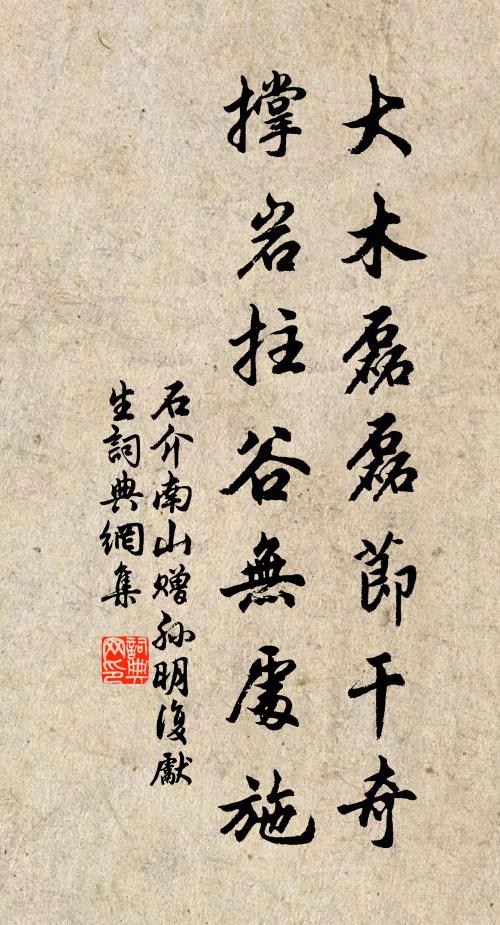 大木磊磊節干奇
撑岩拄谷無處施
石介南山赠孙明復獻
生詞典網集
詞典网印